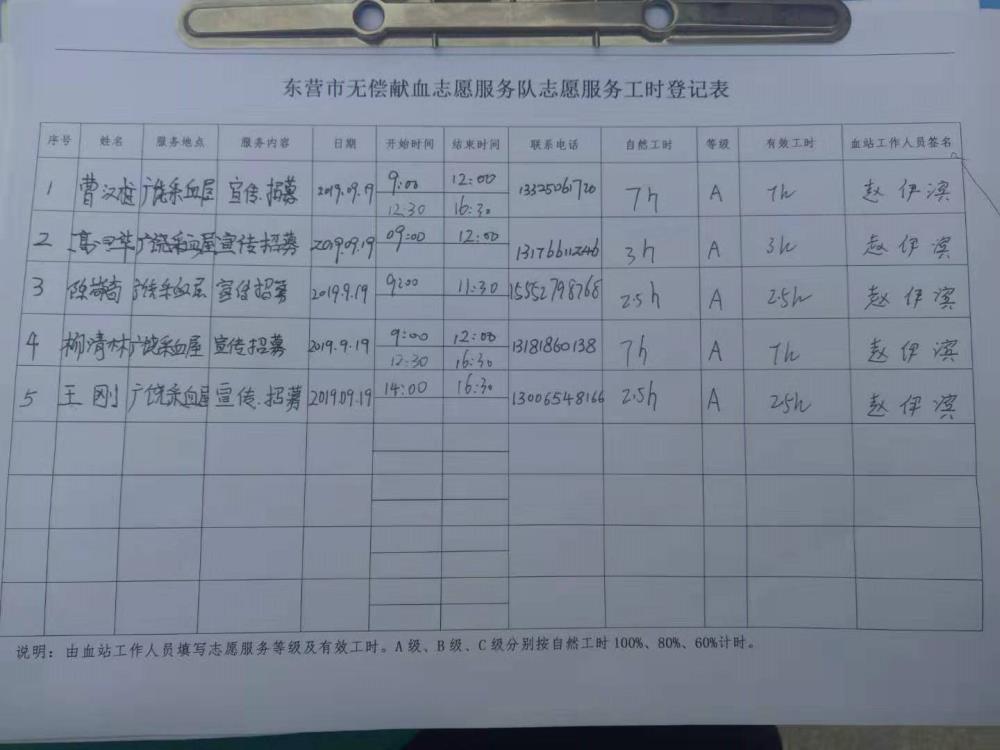 东营市无偿献血志愿服务队志愿服务工时登记表
序号 姓名 服务地点 服务内容 日期 开始时间 结束时间 联系电话 自然工时 等级 有效工时 血站工作人员签名
1 曹汉 广饶采血屋 宣传.招募 2019.09.19 9:00 12:00 13325061720 7h A 7h 赵伊滨
12:30 16:30
2 广饶采血屋 宣传招募 2019.09.19 09:00 12:00 13176611246 3h A 3h 赵伊滨
3 广饶采血屋 宣传招募 2019.9.19 9:00 11:30 15552798768 2.5h A 2.5h 赵伊滨
4 柳清林 广饶采血屋 宣传招募 2019.9.19 9:00 12:00 13181860138 7h A 7h 赵伊滨
12:30 16:30
5 王刚 广饶采血屋 宣传.招募 2019.09.19 14:00 16:30 13006548166 2.5h A 2.5h 赵伊滨
说明：由血站工作人员填写志愿服务等级及有效工时。A级、B级、C级分别按自然工时100%、80%、60%计时。